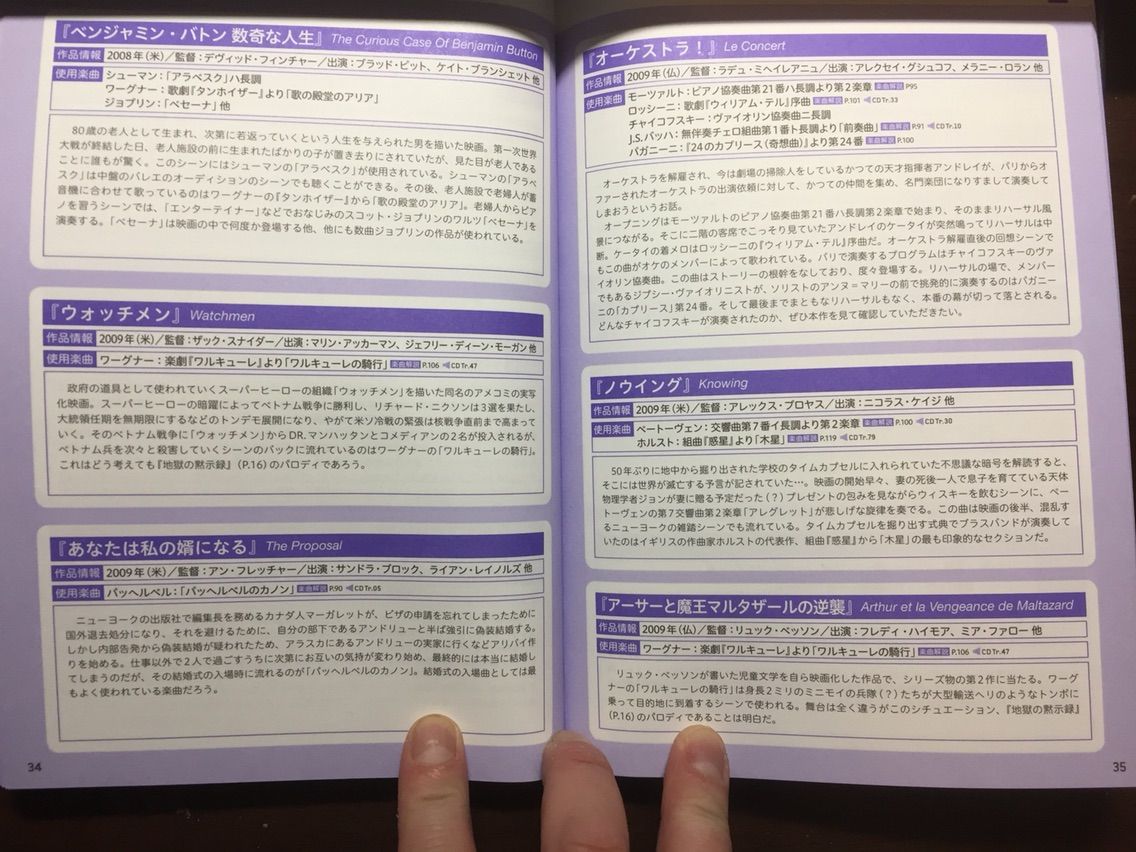 『ベンジャミン・バトン 数奇な人生』 The Curious Case Of Benjamin Button
作品情報 2008年（米）／監督：デヴィッド・フィンチャー／出演：ブラッド・ピット、ケイト・ブランシェット 他
使用楽曲 シューマン：「アラベスク」ハ長調
ワーグナー：歌劇『タンホイザー』より「歌の殿堂のアリア」
ジョプリン：「ベセーナ」他
80歳の老人として生まれ、次第に若返っていくという人生を与えられた男を描いた映画。第一次世界
大戦が終結した日、老人施設の前に生まれたばかりの子が置き去りにされていたが、見た目が老人である
ことに誰もが驚く。このシーンにはシューマンの「アラベスク」が使用されている。シューマンの「アラベ
スク」は中盤のバレエのオーディションのシーンでも聴くことができる。その後、老人施設で老婦人が蓄
音機に合わせて歌っているのはワーグナーの『タンホイザー』から「歌の殿堂のアリア」。老婦人からピア
ノを習うシーンでは、「エンターテイナー」などでおなじみのスコット・ジョプリンのワルツ「ベセーナ」を
演奏する。「ベセーナ」は映画の中で何度か登場する他、他にも数曲ジョプリンの作品が使われている。
『ウォッチメン』 Watchmen
作品情報 2009年（米）／監督：ザック・スナイダー／出演：マリン・アッカーマン、ジェフリー・ディーン・モーガン 他
使用楽曲 ワーグナー：楽劇『ワルキューレ』より「ワルキューレの騎行」 楽曲解説 P.106 ◀CD Tr.47
政府の道具として使われていくスーパーヒーローの組織「ウォッチメン」を描いた同名のアメコミの実写
化映画。スーパーヒーローの暗躍によってベトナム戦争に勝利し、リチャード・ニクソンは3選を果たし、
大統領任期を無期限にするなどのトンデモ展開になり、やがて米ソ冷戦の緊張は核戦争直前まで高まって
いく。そのベトナム戦争に「ウォッチメン」からDR.マンハッタンとコメディアンの2名が投入されるが、
ベトナム兵を次々と殺害していくシーンのバックに流れているのはワーグナーの「ワルキューレの騎行」。
これはどう考えても『地獄の黙示録』（P.16）のパロディであろう。
『あなたは私の婿になる』 The Proposal
作品情報 2009年（米）／監督：アン・フレッチャー／出演：サンドラ・ブロック、ライアン・レイノルズ 他
使用楽曲 パッヘルベル：「パッヘルベルのカノン」 楽曲解説 P.90 ◀CD Tr.05
ニューヨークの出版社で編集長を務めるカナダ人マーガレットが、ビザの申請を忘れてしまったために
国外退去処分になり、それを避けるために、自分の部下であるアンドリューと半ば強引に偽装結婚する。
しかし内部告発から偽装結婚が疑われたため、アラスカにあるアンドリューの実家に行くなどアリバイ作
りを始める。仕事以外で2人で過ごすうちに次第にお互いの気持が変わり始め、最終的には本当に結婚し
てしまうのだが、その結婚式の入場時に流れるのが「パッヘルベルのカノン」。結婚式の入場曲としては最
もよく使われている楽曲だろう。
34
『オーケストラ！』 Le Concert
作品情報 2009年（仏）／監督：ラデュ・ミヘイレアニュ／出演：アレクセイ・グシュコフ、メラニー・ロラン 他
使用楽曲 モーツァルト：ピアノ協奏曲第21番ハ長調より第2楽章 楽曲解説 P95
ロッシーニ：歌劇『ウィリアム・テル』序曲 楽曲解説 P.101 ◀CD Tr.33
チャイコフスキー：ヴァイオリン協奏曲ニ長調
J.S.バッハ：無伴奏チェロ組曲第1番ト長調より「前奏曲」 楽曲解説 P.91 ◀CD Tr.10
パガニーニ：『24のカプリース（奇想曲）』より第24番 楽曲解説 P.100
オーケストラを解雇され、今は劇場の掃除人をしているかつての天才指揮者アンドレイが、パリからオ
ファーされたオーケストラの出演依頼に対して、かつての仲間を集め、名門楽団になりすまして演奏して
しまおうというお話。
オープニングはモーツァルトのピアノ協奏曲第21番ハ長調第2楽章で始まり、そのままリハーサル風
景につながる。そこに二階の客席でこっそり見ていたアンドレイのケータイが突然鳴ってリハーサルは中
断。ケータイの着メロはロッシーニの『ウィリアム・テル』序曲だ。オーケストラ解雇直後の回想シーンで
もこの曲がオケのメンバーによって歌われている。パリで演奏するプログラムはチャイコフスキーのヴァ
イオリン協奏曲。この曲はストーリーの根幹をなしており、度々登場する。リハーサルの場で、メンバー
でもあるジプシー・ヴァイオリニストが、ソリストのアンヌ＝マリーの前で挑発的に演奏するのはパガニー
ニの「カプリース」第24番。そして最後までまともなリハーサルもなく、本番の幕が切って落とされる。
どんなチャイコフスキーが演奏されたのか、ぜひ本作を見て確認していただきたい。
『ノウイング』 Knowing
作品情報 2009年（米）／監督：アレックス・プロヤス／出演：ニコラス・ケイジ 他
使用楽曲 ベートーヴェン：交響曲第7番イ長調より第2楽章 楽曲解説 P.100 ◀CD Tr.30
ホルスト：組曲『惑星』より「木星」 楽曲解説 P.119 ◀CD Tr.79
50年ぶりに地中から掘り出された学校のタイムカプセルに入れられていた不思議な暗号を解読すると、
そこには世界が滅亡する予言が記されていた…。映画の開始早々、妻の死後一人で息子を育てている天体
物理学者ジョンが妻に贈る予定だった（？）プレゼントの包みを見ながらウィスキーを飲むシーンに、ベー
トーヴェンの第7交響曲第2楽章「アレグレット」が悲しげな旋律を奏でる。この曲は映画の後半、混乱す
るニューヨークの雑踏シーンでも流れている。タイムカプセルを掘り出す式典でブラスバンドが演奏して
いたのはイギリスの作曲家ホルストの代表作、組曲『惑星』から「木星」の最も印象的なセクションだ。
『アーサーと魔王マルタザールの逆襲』 Arthur et la Vengeance de Maltazard
作品情報 2009年（仏）／監督：リュック・ベッソン／出演：フレディ・ハイモア、ミア・ファロー 他
使用楽曲 ワーグナー：楽劇『ワルキューレ』より「ワルキューレの騎行」 楽曲解説 P.106 ◀CD Tr.47
リュック・ベッソンが書いた児童文学を自ら映画化した作品で、シリーズ物の第2作に当たる。ワーグ
ナーの「ワルキューレの騎行」は身長2ミリのミニモイの兵隊（？）たちが大型輸送ヘリのようなトンボに
乗って目的地に到着するシーンで使われる。舞台は全く違うがこのシチュエーション、『地獄の黙示録』
（P.16）のパロディであることは明白だ。
35